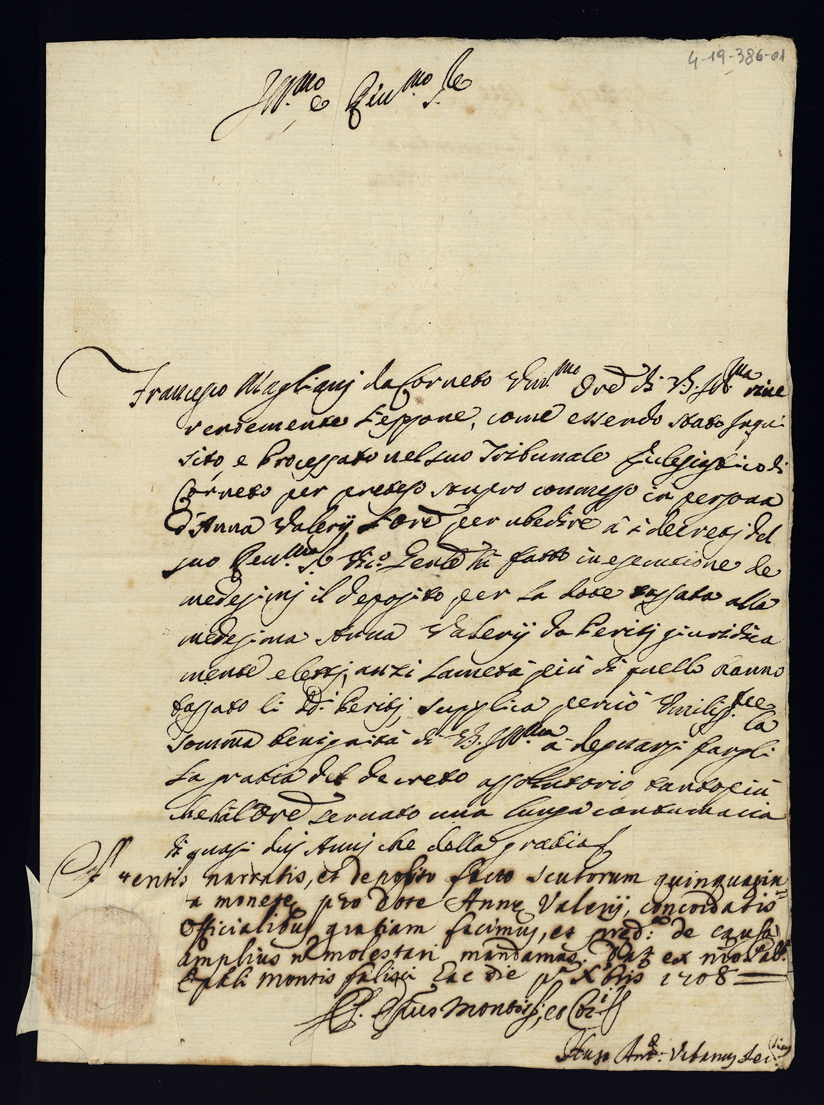 4-19-386-01
Ill.mo e Reu.mo Sre
Francesco Magliani da Corneto Vmil.mo Ore di V.S. Ill.ma riue
rendemente l'espone, come essendo stato inqui
sito, e Processato nel suo Tribunale Eclesiastico di
Corneto per preteso stupro commesso in persona
d'Anna Valerij l'Ore per ubedire à i decretj del
suo Reu.mo S. Vic.o Genle hà fatto in esecutione de
medesimj il deposito per la dote tassata alla
medesima Anna Valerij da Peritj giuridica
mente elettj, anzi la metà più di quello hanno
tassato li dj Peritj, supplica perciò Vmiliss.te la
somma benignità di V.S. Ill.ma à degnarsi farglj
la gratia del decreto assolutorio tanto più
che hà l'Ore seruato una lunga contumacia
di quasi dij Annj che della gratia
narratis, et deposito facto scutorum quinquaginta
monete pro dote Anne Valerij, concordatis
Officialibus gratiam facimus, et pred: de causa
amplius n molestari mandamus. Dat ex
Epali Montis falisci hac die p.a Xbris 1708
Epus Montisf. et Cor.
Ant.s Vrbanus